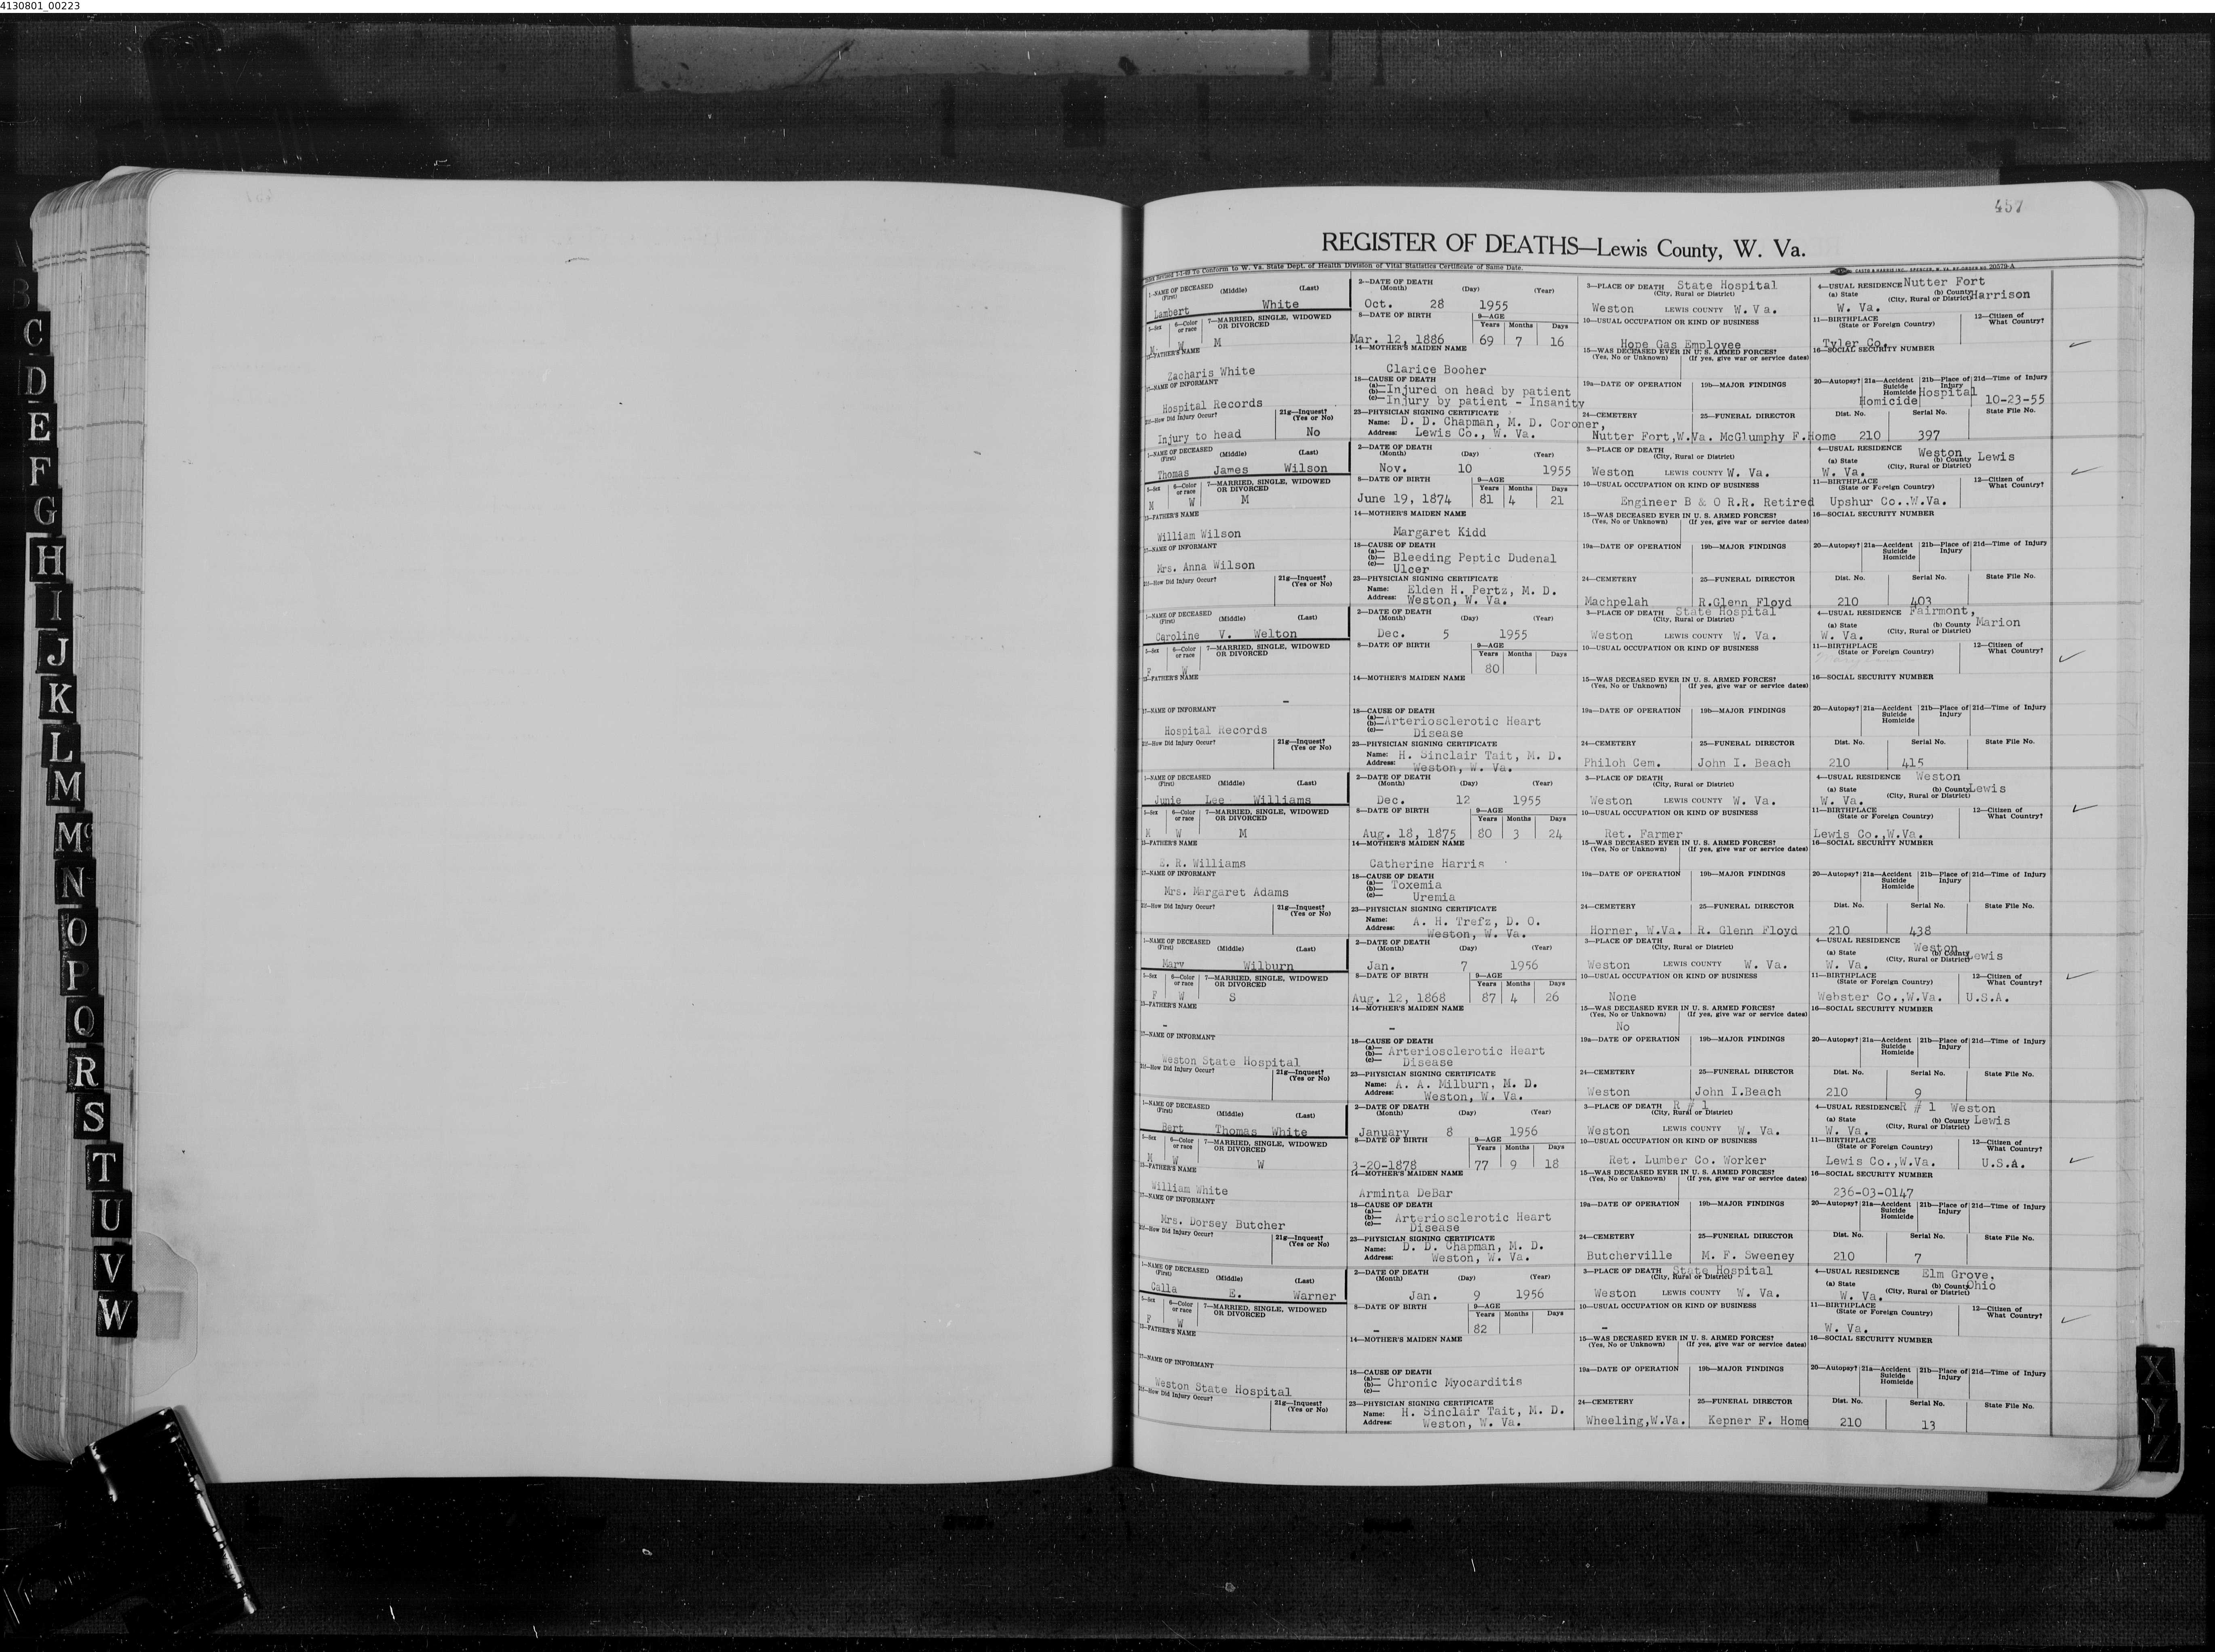 4130801_00223
457
REGISTER OF DEATHS—Lewis County, W. Va.
Revised 1-1-49 To Conform to W. Va. State Dept. of Health Division of Vital Statistics Certificate of Same Date.
CASTO & HARRIS INC., SPENCER, W. VA. RE-ORDER NO. 20579-A
1—NAME OF DECEASED (First) (Middle) (Last) Lambert White
2—DATE OF DEATH (Month) (Day) (Year) Oct. 28 1955
3—PLACE OF DEATH State Hospital (City, Rural or District) Weston LEWIS COUNTY W. Va.
4—USUAL RESIDENCE Nutter Fort (a) State (b) County Harrison (City, Rural or District) W. Va.
5—Sex M 6—Color or race W 7—MARRIED, SINGLE, WIDOWED OR DIVORCED M
8—DATE OF BIRTH Mar. 12, 1886 9—AGE Years Months Days 69 7 16
10—USUAL OCCUPATION OR KIND OF BUSINESS Hope Gas Employee
11—BIRTHPLACE (State or Foreign Country) Tyler Co. 12—Citizen of What Country?
13—FATHER'S NAME Zacharis White
14—MOTHER'S MAIDEN NAME Clarice Booher
15—WAS DECEASED EVER IN U. S. ARMED FORCES? (Yes, No or Unknown) (If yes, give war or service dates)
16—SOCIAL SECURITY NUMBER
17—NAME OF INFORMANT Hospital Records
18—CAUSE OF DEATH (a)— (b)— (c)— Injured on head by patient Injury by patient - Insanity
19a—DATE OF OPERATION 19b—MAJOR FINDINGS
20—Autopsy? 21a—Accident Suicide Homicide Homicide 21b—Place of Injury Hospital 21d—Time of Injury 10-23-55
21f—How Did Injury Occur? Injury to head 21g—Inquest? (Yes or No) No
23—PHYSICIAN SIGNING CERTIFICATE Name: D. D. Chapman, M. D. Coroner, Address: Lewis Co., W. Va.
24—CEMETERY Nutter Fort,W.Va. 25—FUNERAL DIRECTOR McGlumphy F.Home
Dist. No. 210 Serial No. 397 State File No.
1—NAME OF DECEASED (First) (Middle) (Last) Thomas James Wilson
2—DATE OF DEATH (Month) (Day) (Year) Nov. 10 1955
3—PLACE OF DEATH (City, Rural or District) Weston LEWIS COUNTY W. Va.
4—USUAL RESIDENCE Weston (a) State (b) County Lewis (City, Rural or District) W. Va.
5—Sex M 6—Color or race W 7—MARRIED, SINGLE, WIDOWED OR DIVORCED M
8—DATE OF BIRTH June 19, 1874 9—AGE Years Months Days 81 4 21
10—USUAL OCCUPATION OR KIND OF BUSINESS Engineer B & O R.R. Retired
11—BIRTHPLACE (State or Foreign Country) Upshur Co..W.Va. 12—Citizen of What Country?
13—FATHER'S NAME William Wilson
14—MOTHER'S MAIDEN NAME Margaret Kidd
15—WAS DECEASED EVER IN U. S. ARMED FORCES? (Yes, No or Unknown) (If yes, give war or service dates)
16—SOCIAL SECURITY NUMBER
17—NAME OF INFORMANT Mrs. Anna Wilson
18—CAUSE OF DEATH (a)— (b)— (c)— Bleeding Peptic Dudenal Ulcer
19a—DATE OF OPERATION 19b—MAJOR FINDINGS
20—Autopsy? 21a—Accident Suicide Homicide 21b—Place of Injury 21d—Time of Injury
21f—How Did Injury Occur? 21g—Inquest? (Yes or No)
23—PHYSICIAN SIGNING CERTIFICATE Name: Elden H. Pertz, M. D. Address: Weston, W. Va.
24—CEMETERY Machpelah 25—FUNERAL DIRECTOR R.Glenn Floyd
Dist. No. 210 Serial No. 403 State File No.
1—NAME OF DECEASED (First) (Middle) (Last) Caroline V. Welton
2—DATE OF DEATH (Month) (Day) (Year) Dec. 5 1955
3—PLACE OF DEATH State Hospital (City, Rural or District) Weston LEWIS COUNTY W. Va.
4—USUAL RESIDENCE Fairmont, (a) State (b) County Marion (City, Rural or District) W. Va.
5—Sex F 6—Color or race W 7—MARRIED, SINGLE, WIDOWED OR DIVORCED
8—DATE OF BIRTH 9—AGE Years Months Days 80
10—USUAL OCCUPATION OR KIND OF BUSINESS
11—BIRTHPLACE (State or Foreign Country) 12—Citizen of What Country?
13—FATHER'S NAME -
14—MOTHER'S MAIDEN NAME
15—WAS DECEASED EVER IN U. S. ARMED FORCES? (Yes, No or Unknown) (If yes, give war or service dates)
16—SOCIAL SECURITY NUMBER
17—NAME OF INFORMANT Hospital Records
18—CAUSE OF DEATH (a)— (b)— (c)— Arteriosclerotic Heart Disease
19a—DATE OF OPERATION 19b—MAJOR FINDINGS
20—Autopsy? 21a—Accident Suicide Homicide 21b—Place of Injury 21d—Time of Injury
21f—How Did Injury Occur? 21g—Inquest? (Yes or No)
23—PHYSICIAN SIGNING CERTIFICATE Name: H. Sinclair Tait, M. D. Address: Weston, W. Va.
24—CEMETERY Philoh Cem. 25—FUNERAL DIRECTOR John I. Beach
Dist. No. 210 Serial No. 415 State File No.
1—NAME OF DECEASED (First) (Middle) (Last) Junie Lee Williams
2—DATE OF DEATH (Month) (Day) (Year) Dec. 12 1955
3—PLACE OF DEATH (City, Rural or District) Weston LEWIS COUNTY W. Va.
4—USUAL RESIDENCE Weston (a) State (b) County Lewis (City, Rural or District) W. Va.
5—Sex M 6—Color or race W 7—MARRIED, SINGLE, WIDOWED OR DIVORCED M
8—DATE OF BIRTH Aug. 18, 1875 9—AGE Years Months Days 80 3 24
10—USUAL OCCUPATION OR KIND OF BUSINESS Ret. Farmer
11—BIRTHPLACE (State or Foreign Country) Lewis Co.,W.Va. 12—Citizen of What Country?
13—FATHER'S NAME E. R. Williams
14—MOTHER'S MAIDEN NAME Catherine Harris
15—WAS DECEASED EVER IN U. S. ARMED FORCES? (Yes, No or Unknown) (If yes, give war or service dates)
16—SOCIAL SECURITY NUMBER
17—NAME OF INFORMANT Mrs. Margaret Adams
18—CAUSE OF DEATH (a)— (b)— (c)— Toxemia Uremia
19a—DATE OF OPERATION 19b—MAJOR FINDINGS
20—Autopsy? 21a—Accident Suicide Homicide 21b—Place of Injury 21d—Time of Injury
21f—How Did Injury Occur? 21g—Inquest? (Yes or No)
23—PHYSICIAN SIGNING CERTIFICATE Name: A. H. Trefz, D. O. Address: Weston, W. Va.
24—CEMETERY Horner, W.Va. 25—FUNERAL DIRECTOR R. Glenn Floyd
Dist. No. 210 Serial No. 438 State File No.
1—NAME OF DECEASED (First) (Middle) (Last) Mary Wilburn
2—DATE OF DEATH (Month) (Day) (Year) Jan. 7 1956
3—PLACE OF DEATH (City, Rural or District) Weston LEWIS COUNTY W. Va.
4—USUAL RESIDENCE Weston (a) State (b) County Lewis (City, Rural or District) W. Va.
5—Sex F 6—Color or race W 7—MARRIED, SINGLE, WIDOWED OR DIVORCED S
8—DATE OF BIRTH Aug. 12, 1868 9—AGE Years Months Days 87 4 26
10—USUAL OCCUPATION OR KIND OF BUSINESS None
11—BIRTHPLACE (State or Foreign Country) Webster Co.,W.Va. 12—Citizen of What Country? U.S.A.
13—FATHER'S NAME -
14—MOTHER'S MAIDEN NAME -
15—WAS DECEASED EVER IN U. S. ARMED FORCES? (Yes, No or Unknown) (If yes, give war or service dates) No
16—SOCIAL SECURITY NUMBER
17—NAME OF INFORMANT Weston State Hospital
18—CAUSE OF DEATH (a)— (b)— (c)— Arteriosclerotic Heart Disease
19a—DATE OF OPERATION 19b—MAJOR FINDINGS
20—Autopsy? 21a—Accident Suicide Homicide 21b—Place of Injury 21d—Time of Injury
21f—How Did Injury Occur? 21g—Inquest? (Yes or No)
23—PHYSICIAN SIGNING CERTIFICATE Name: A. A. Milburn, M. D. Address: Weston, W. Va.
24—CEMETERY Weston 25—FUNERAL DIRECTOR John I.Beach
Dist. No. 210 Serial No. 9 State File No.
1—NAME OF DECEASED (First) (Middle) (Last) Bert Thomas White
2—DATE OF DEATH (Month) (Day) (Year) January 8 1956
3—PLACE OF DEATH R # 1 (City, Rural or District) Weston LEWIS COUNTY W. Va.
4—USUAL RESIDENCE R # 1 Weston (a) State (b) County Lewis (City, Rural or District) W. Va.
5—Sex M 6—Color or race W 7—MARRIED, SINGLE, WIDOWED OR DIVORCED W
8—DATE OF BIRTH 3-20-1878 9—AGE Years Months Days 77 9 18
10—USUAL OCCUPATION OR KIND OF BUSINESS Ret. Lumber Co. Worker
11—BIRTHPLACE (State or Foreign Country) Lewis Co.,W.Va. 12—Citizen of What Country? U.S.A.
13—FATHER'S NAME William White
14—MOTHER'S MAIDEN NAME Arminta DeBar
15—WAS DECEASED EVER IN U. S. ARMED FORCES? (Yes, No or Unknown) (If yes, give war or service dates)
16—SOCIAL SECURITY NUMBER 236-03-0147
17—NAME OF INFORMANT Mrs. Dorsey Butcher
18—CAUSE OF DEATH (a)— (b)— (c)— Arteriosclerotic Heart Disease
19a—DATE OF OPERATION 19b—MAJOR FINDINGS
20—Autopsy? 21a—Accident Suicide Homicide 21b—Place of Injury 21d—Time of Injury
21f—How Did Injury Occur? 21g—Inquest? (Yes or No)
23—PHYSICIAN SIGNING CERTIFICATE Name: D. D. Chapman, M. D. Address: Weston, W. Va.
24—CEMETERY Butcherville 25—FUNERAL DIRECTOR M. F. Sweeney
Dist. No. 210 Serial No. 7 State File No.
1—NAME OF DECEASED (First) (Middle) (Last) Calla E. Warner
2—DATE OF DEATH (Month) (Day) (Year) Jan. 9 1956
3—PLACE OF DEATH State Hospital (City, Rural or District) Weston LEWIS COUNTY W. Va.
4—USUAL RESIDENCE Elm Grove, (a) State (b) County Ohio (City, Rural or District) W. Va.
5—Sex F 6—Color or race W 7—MARRIED, SINGLE, WIDOWED OR DIVORCED
8—DATE OF BIRTH - 9—AGE Years Months Days 82
10—USUAL OCCUPATION OR KIND OF BUSINESS -
11—BIRTHPLACE (State or Foreign Country) W. Va. 12—Citizen of What Country?
13—FATHER'S NAME
14—MOTHER'S MAIDEN NAME
15—WAS DECEASED EVER IN U. S. ARMED FORCES? (Yes, No or Unknown) (If yes, give war or service dates)
16—SOCIAL SECURITY NUMBER
17—NAME OF INFORMANT Weston State Hospital
18—CAUSE OF DEATH (a)— (b)— (c)— Chronic Myocarditis
19a—DATE OF OPERATION 19b—MAJOR FINDINGS
20—Autopsy? 21a—Accident Suicide Homicide 21b—Place of Injury 21d—Time of Injury
21f—How Did Injury Occur? 21g—Inquest? (Yes or No)
23—PHYSICIAN SIGNING CERTIFICATE Name: H. Sinclair Tait, M. D. Address: Weston, W. Va.
24—CEMETERY Wheeling,W.Va. 25—FUNERAL DIRECTOR Kepner F. Home
Dist. No. 210 Serial No. 13 State File No.
B
C
D
E
F
G
H
I
J
K
L
M
Mc
N
O
P
Q
R
S
T
U
V
W
X
Y
Z